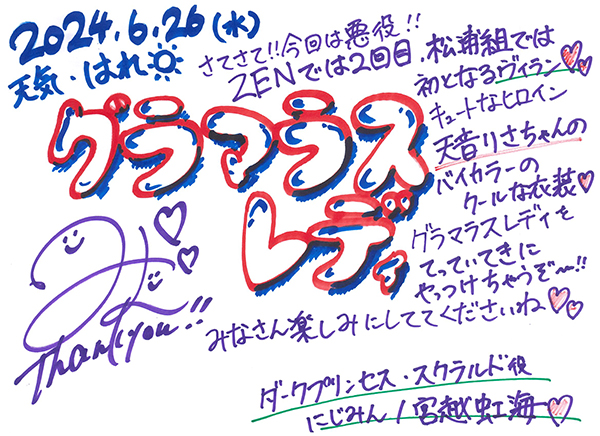 2024.6.26(水)
天気・はれ
さてさて!!今回は悪役!!
ZENでは2回目、松浦組では
初となるヴィラン
キュートなヒロイン
天音りさちゃんの
バイカラーの
クールな衣装
グラマラスレディを
てっていてきに
やっつけちゃうぞ〜!!
みなさん楽しみにしててくださいね
グラマラス
レディ
Thank you!!
ダークプリンセス・スクラルド役
にじみん/宮越虹海